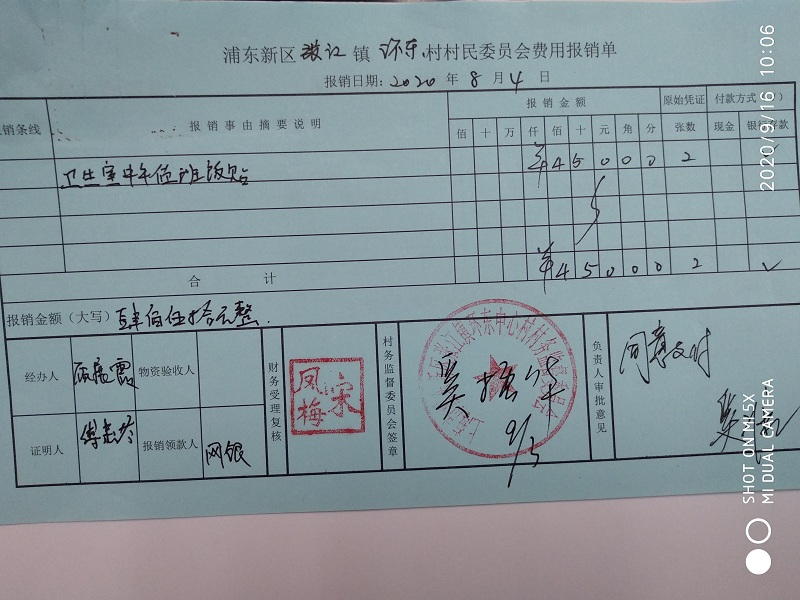 浦东新区 张江 镇 环东 村村民委员会费用报销单
报销日期: 2020 年 8 月 4 日
销条线 报销事由摘要说明 报销金额 原始凭证 付款方式(
佰 十 万 仟 佰 十 元 角 分 张数 现金 银行存款
卫生室中午值班饭贴 ¥ 4 5 0 0 0 2
合计 ¥ 4 5 0 0 0 2 √
报销金额（大写） 肆佰伍拾元整.
经办人 物资验收人 财务受理复核 宋凤梅 村务监督委员会签章 负责人审批意见 同意支付
张江镇环东中心村村务监督委员会
9/3
证明人 报销领款人 网银
2020/9/16 10:06
SHOT ON MI 5X
MI DUAL CAMERA